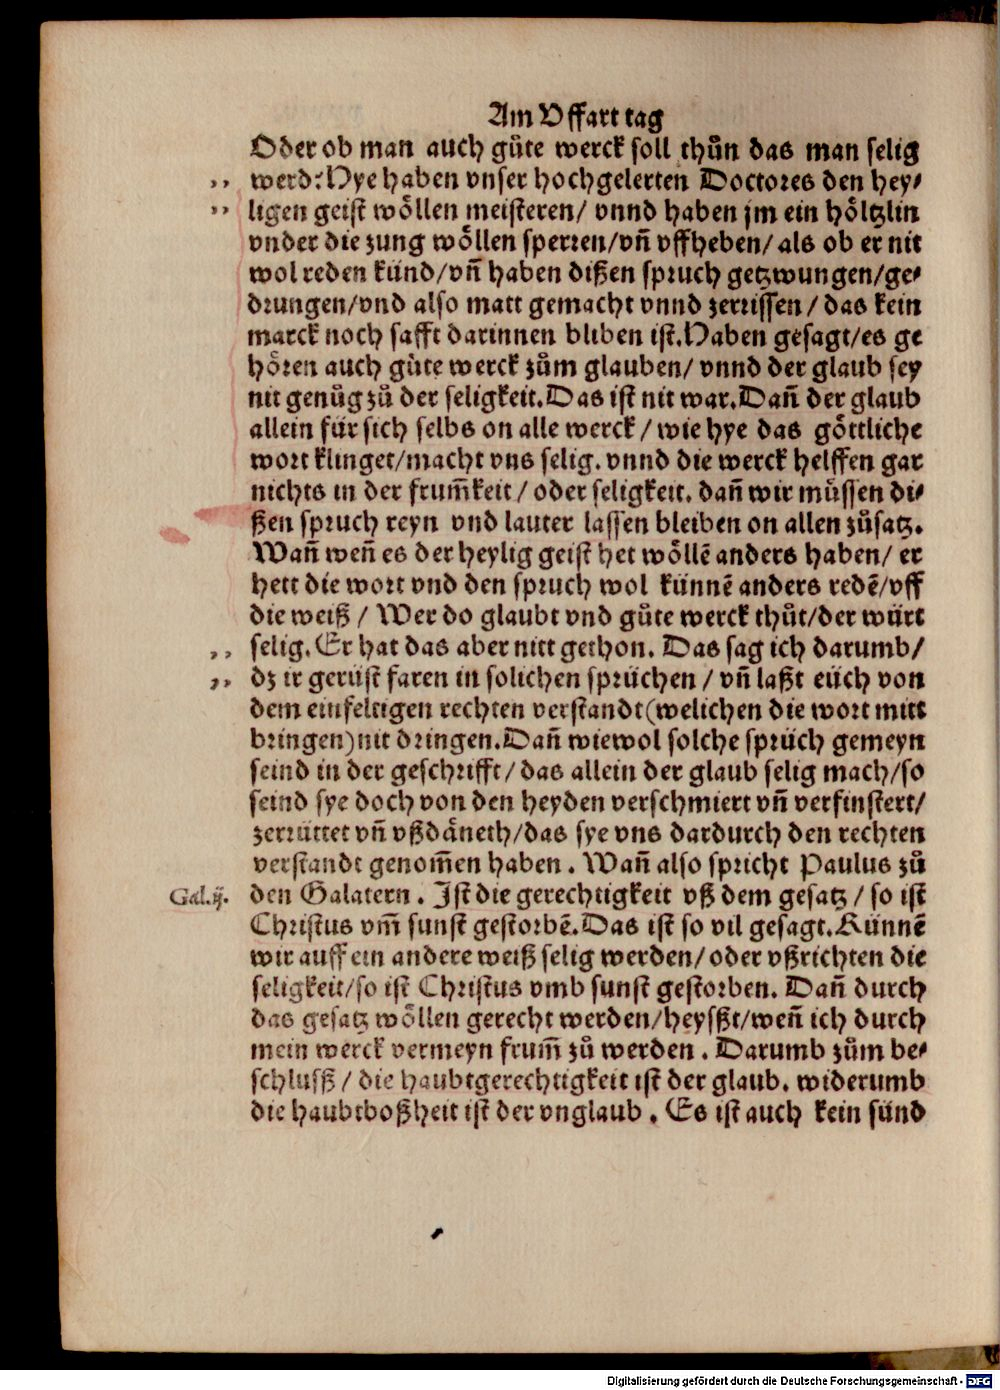 Am Vffart tag
Oder ob man auch gůte werck soll thůn das man selig
,, werd: Hye haben vnser hochgelerten Doctores den hey⸗
,, ligen geist wöllen meisteren/ vnnd haben jm ein höltzlin
vnder die zung wöllen sperren/vñ vffheben/ als ob er nit
wol reden künd/vñ haben dißen spruch getzwungen/ge⸗
drungen/vnd also matt gemacht vnnd zerrissen/ das kein
marck noch safft darinnen bliben ist. Haben gesagt/es ge
hören auch gůte werck zům glauben/ vnnd der glaub sey
nit genůg zů der seligkeit. Das ist nit war. Dañ der glaub
allein für sich selbs on alle werck/ wie hye das göttliche
wort klinget/macht vns selig. vnnd die werck helffen gar
nichts in der frum̃keit/ oder seligkeit. dañ wir müssen di⸗
ßen spruch reyn vnd lauter lassen bleiben on allen zůsatz.
Wañ weñ es der heylig geist het wöllẽ anders haben/ er
hett die wort vnd den spruch wol künnẽ anders redẽ/vff
die weiß/ Wer do glaubt vnd gůte werck thůt/der würt
,, selig. Er hat das aber nitt gethon. Das sag ich darumb/
,, dz ir gerüst faren in solichen sprüchen/ vñ laßt eüch von
dem einfeltigen rechten verstandt(welichen die wort mitt
bringen)nit dringen. Dañ wiewol solche sprüch gemeyn
seind in der geschrifft/ das allein der glaub selig mach/so
seind sye doch von den heyden verschmiert vñ verfinstert/
zerrüttet vñ vßdäneth/das sye vns dardurch den rechten
verstandt genom̃en haben. Wañ also spricht Paulus zů
Gal.ij. den Galatern. Ist die gerechtigkeit vß dem gesatz/ so ist
Christus vm̃ sunst gestorbẽ. Das ist so vil gesagt. Künnẽ
wir auff ein andere weiß selig werden/ oder vßrichten die
seligkeit/so ist Christus vmb sunst gestorben. Dañ durch
das gesatz wöllen gerecht werden/heysßt/weñ ich durch
mein werck vermeyn frum̃ zů werden. Darumb zům be⸗
schlusß/ die haubtgerechtigkeit ist der glaub. widerumb
die haubtboßheit ist der vnglaub. Es ist auch kein sünd
Digitalisierung gefördert durch die Deutsche Forschungsgemeinschaft - DFG